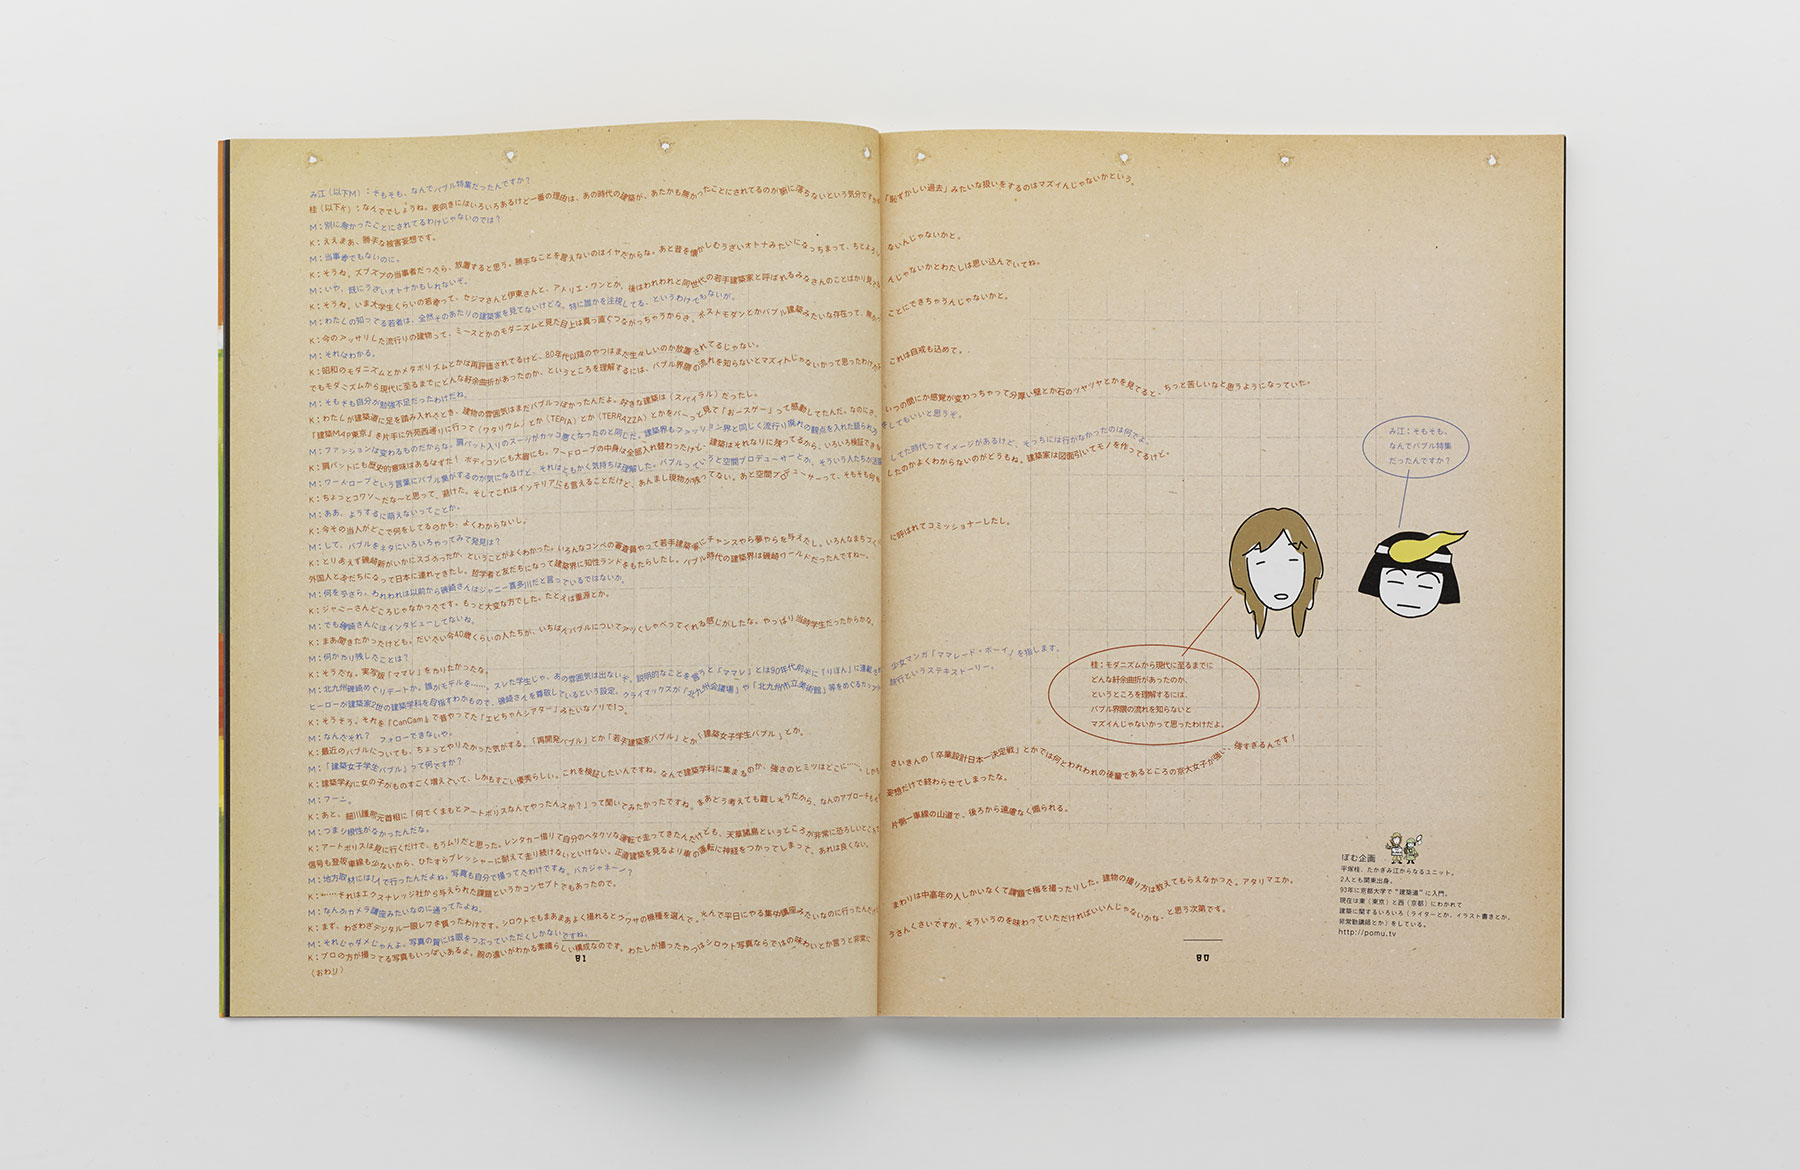 み江（以下M）：そもそも、なんでバブル特集だったんですか？
桂（以下K）：なんででしょうね。表向きにはいろいろあるけど一番の理由は、あの時代の建築が、あたかも無かったことにされてるのが腑に落ちないという気分ですか 「恥ずかしい過去」みたいな扱いをするのはマズイんじゃないかという。
M：別に無かったことにされてるわけじゃないのでは？
K：ええまあ、勝手な被害妄想です。
M：当事者でもないのに。
K：そうね、ズブズブの当事者だったら、放置すると思う。勝手なことを言えないのはイヤだからな。あと昔を懐かしむうざいオトナみたいになっちまって、ちとよろし ないんじゃないかと。
M：いや、既にうざいオトナかもしれないぞ。
K：そうね、いま大学生くらいの若者って、セジマさんと伊東さんと、アトリエ・ワンとか、後はわれわれと同世代の若手建築家と呼ばれるみなさんのことばかり見 んじゃないかとわたしは思い込んでいてね。
M：わたしの知ってる若者は、全然そのあたりの建築家を見てないけどな。特に誰かを注視してる、というわけでもないが。
K：今のアッサリした流行りの建物って、ミースとかのモダニズムと見た目上は真っ直ぐつながっちゃうからさ。ポストモダンとかバブル建築みたいな存在って、無か ことにできちゃうんじゃないかと。
M：それはわかる。
K：昭和のモダニズムとかメタボリズムとかは再評価されてるけど、80年代以降のやつはまだ生々しいのか放置されてるじゃない。
でもモダニズムから現代に至るまでにどんな紆余曲折があったのか、というところを理解するには、バブル界隈の流れを知らないとマズイんじゃないかって思ったわけ これは自戒も込めて。
M：そもそも自分が勉強不足だったわけだね。
K：わたしが建築道に足を踏み入れたとき、建物の雰囲気はまだバブルっぽかったんだよ。好きな建築は〈スパイラル〉だったし。
『建築MAP東京』を片手に外苑西通りに行って〈ワタリウム〉とか〈TEPIA〉とか〈TERRAZZA〉とかをバーっと見て「おースゲー」って感動してたんだ。なのにさ、 いつの間にか感覚が変わっちゃって分厚い壁とか石のツヤツヤとかを見てると、ちっと苦しいなと思うようになっていた。
M：ファッションは変わるものだからな。肩パット入りのスーツがカッコ悪くなったのと同じだ。建築界もファッション界と同じく流行り廃れの観点を入れた語られ をしてもいいと思うぞ。
K：肩パットにも歴史的意味はあるはずだ！ ボディコンにも太眉にも。ワードローブの中身は全部入れ替わったけど、建築はそれなりに残ってるから、いろいろ検証でき
M：ワードローブという言葉にバブル臭がするのが気になるけど、それはともかく気持ちは理解した。バブルっていうと空間プロデューサーとか、そういう人たちが してた時代ってイメージがあるけど、そっちには行かなかったのは何でよ。
K：ちょっとコワソーだな〜と思って、避けた。そしてこれはインテリアにも言えることだけど、あんまし現物が残ってない。あと空間プロデューサーって、そもそも何 したのかよくわからないのがどうもね。建築家は図面引いてモノを作ってるけど。
M：ああ、ようするに萌えないってことか。
K：今その当人がどこで何をしてるのかも、よくわからないし。
M：して、バブルをネタにいろいろやってみて発見は？
K：とりあえず磯崎新がいかにスゴあったか、ということがよくわかった。いろんなコンペの審査員やって若手建築家にチャンスやら夢やらを与えたし。いろんなまちづくり に呼ばれてコミッショナーしたし。
外国人と友だちになって日本に連れてきたし。哲学者と友だちになって建築界に知性ランドをもたらしたし。バブル時代の建築界は磯崎ワールドだったんですね〜。
M：何を今さら。われわれは以前から磯崎さんはジャニー喜多川だと言っているではないか。
K：ジャニーさんどころじゃなかったです。もっと大変な方でした。たとえば重源とか。
M：でも磯崎さんにはインタビューしてないね。
K：まあ聞きたかったけども。だいたい今40歳くらいの人たちが、いちばんバブルについてアツくしゃべってくれる感じがしたな。やっぱり当時学生だったからかな。
M：何かやり残したことは？
K：そうだな。実写版「ママレ」をやりたかったな。
M：北九州磯崎めぐりデートか。誰がモデルを……。スレた学生じゃ、あの雰囲気は出ないぞ。説明的なことを言うと「ママレ」とは90年代前半に『りぼん』に連載 少女マンガ「ママレード・ボーイ」を指します。
ヒーローが建築家2世の建築学科を目指すわかもので、磯崎さんを尊敬しているという設定。クライマックスが「北九州会議場」や「北九州市立美術館」等をめぐるカップ 旅行というステキストーリー。
K：そうそう。それを『CanCam』で昔やってた「エビちゃんシアター」みたいなノリで1つ。
M：なんだそれ？ フォローできないや。
K：最近のバブルについても、ちょっとやりたかった気がする。「再開発バブル」とか「若手建築家バブル」とか「建築女子学生バブル」とか。
M：「建築女子学生バブル」って何ですか？
K：建築学科に女の子がものすごく増えていて、しかもすごい優秀らしい。これを検証したいんですね。なんで建築学科に集まるのか、強さのヒミツはどこに……、しかも さいきんの「卒業設計日本一決定戦」とかでは何とわれわれの後輩であるところの京大女子が強い、強すぎるんです！
M：フーン。
K：あと、細川護熙元首相に「何でくまもとアートポリスなんてやったんスか？」って聞いてみたかったですね。まあどう考えても難しそうだから、なんのアプローチも 妄想だけで終わらせてしまったな。
M：つまり根性がなかったんだな。
K：アートポリスは見に行くだけで、もうムリだと思った。レンタカー借りて自分のヘタクソな運転で走ってきたんだけども、天草諸島というところが非常に恐ろしいところで 片側一車線の山道で、後ろから遠慮なく煽られる。
信号も登坂車線も少ないから、ひたすらプレッシャーに耐えて走り続けないといけない。正直建築を見るより車の運転に神経をつかってしまって、あれは良くない。
M：地方取材にはLで行ったんだよね。写真も自分で撮ってたわけですね。バカジャネーノ？
K：……それはエクスナレッジ社から与えられた課題というかコンセプトでもあったので。
M：なんかカメラ講座みたいなのに通ってたよね。
K：まず、わざわざデジタル一眼レフを買ったわけです。シロウトでもまあまあよく撮れるとウワサの機種を選んで。そんで平日にやる集中講座みたいなのに行ったんだけど まわりは中高年の人しかいなくて課題で梅を撮ったりした。建物の撮り方は教えてもらえなかった。アタリマエか。
M：それじゃダメじゃんよ。写真の質には眼をつぶっていただくしかないですね。
K：プロの方が撮ってる写真もいっぱいあるよ。腕の違いがわかる素晴らしい構成なのです。わたしが撮ったやつはシロウト写真ならではの味わいとか言うと非常に うさんくさいですが、そういうのを味わっていただければいいんじゃないかな、と思う次第です。
（おわり）
81
み江：そもそも、
なんでバブル特集
だったんですか？
桂：モダニズムから現代に至るまでに
どんな紆余曲折があったのか、
というところを理解するには、
バブル界隈の流れを知らないと
マズイんじゃないかって思ったわけだよ。
ぽむ企画
平塚桂、たかぎみ江からなるユニット。
2人とも関東出身。
93年に京都大学で“建築道”に入門。
現在は東（東京）と西（京都）にわかれて
建築に関するいろいろ（ライターとか、イラスト書きとか、
非常勤講師とか）をしている。
http://pomu.tv
80